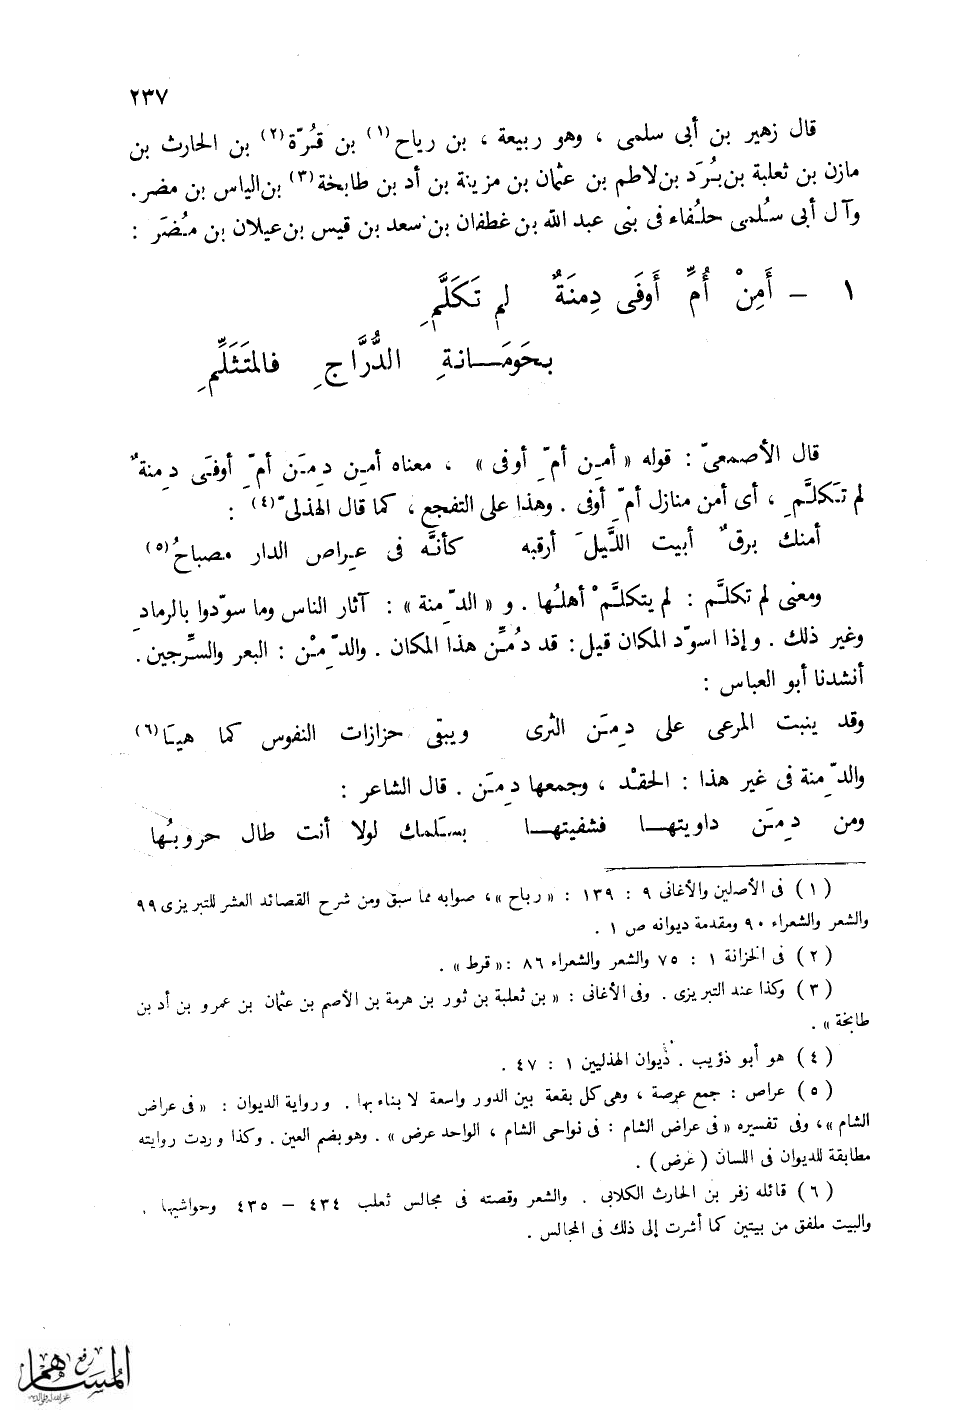 ٢٣٧
قال زهير بن أبى سلمى ، وهو ربيعة ، بن رياح(١) بن قُرّة(٢) بن الحارث بن
مازن بن ثعلبة بن بُرَد بن لاطم بن عثمان بن مزينة بن أد بن طابخة(٣) بن الياس بن مضر .
وآل أبى سُلمى حلُفاء فى بنى عبد الله بن غطفان بن سعد بن قيس بن عيلان بن مُضَر :
١ – أَمِنْ أُمِّ أَوفَى دِمنَةٌ لم تَكَلَّمِ
بحَومَـــانةِ الدُّرَّاجِ فالمتَثَلِّمِ
قال الأصمعىّ : قوله « أمِن أمّ ِ أوفى » ، معناه أمِن دِمَن أمّ ِ أوفَى دِمنةٌ
لم تَكلَّمِ ، أى أمن منازل أمّ ِ أوفى . وهذا على التفجع ، كما قال الهذلىّ(٤) :
أمنك برقٌ أبيت اللَّيلَ أرقبه كأنَّه فى عِراص الدار مصباحُ(٥)
ومعنى لم تكلَّم : لم يتكلَّمْ أهلُها . و « الدِّمنة » : آثار الناس وما سوّدوا بالرمادِ
وغير ذلك . وإذا اسودّ المكان قيل : قد دُمِّن هذا المكان . والدِّمْن : البعر والسِّرجين .
أنشدنا أبو العباس :
وقد ينبت المرعى على دِمَن الثرى ويبقى حزازات النفوس كما هيَا(٦)
والدِّمنة فى غير هذا : الحقْد ، وجمعها دِمَن . قال الشاعر :
ومن دِمَن داويتهــا فشفيتهــا بسَلمك لولا أنت طال حروبُها
(١) فى الأصلين والأغانى ٩ : ١٣٩ : « رباح » ، صوابه مما سبق ومن شرح القصائد العشر للتبريزى ٩٩
والشعر والشعراء ٩٠ ومقدمة ديوانه ص ١ .
(٢) فى الخزانة ١ : ٧٥ والشعر والشعراء ٨٦ : « قرط » .
(٣) وكذا عند التبريزى . وفى الأغانى : « بن ثعلبة بن ثور بن هرمة بن الأصم بن عثمان بن عمرو بن أد بن
طابخة » .
(٤) هو أبو ذؤيب . ديوان الهذليين ١ : ٤٧ .
(٥) عراص : جمع عرصة ، وهى كل بقعة بين الدور واسعة لا بناء بها . ورواية الديوان : « فى عراض
الشام » ، وفى تفسيره « فى عراض الشام : فى نواحى الشام ، الواحد عرض » . وهو بضم العين . وكذا وردت روايته
مطابقة للديوان فى اللسان ( عرض ) .
(٦) قائله زفر بن الحارث الكلابى . والشعر وقصته فى مجالس ثعلب ٤٣٤ – ٤٣٥ وحواشيها .
والبيت ملفق من بيتين كما أشرت إلى ذلك فى المجالس .
رفع
المساهم